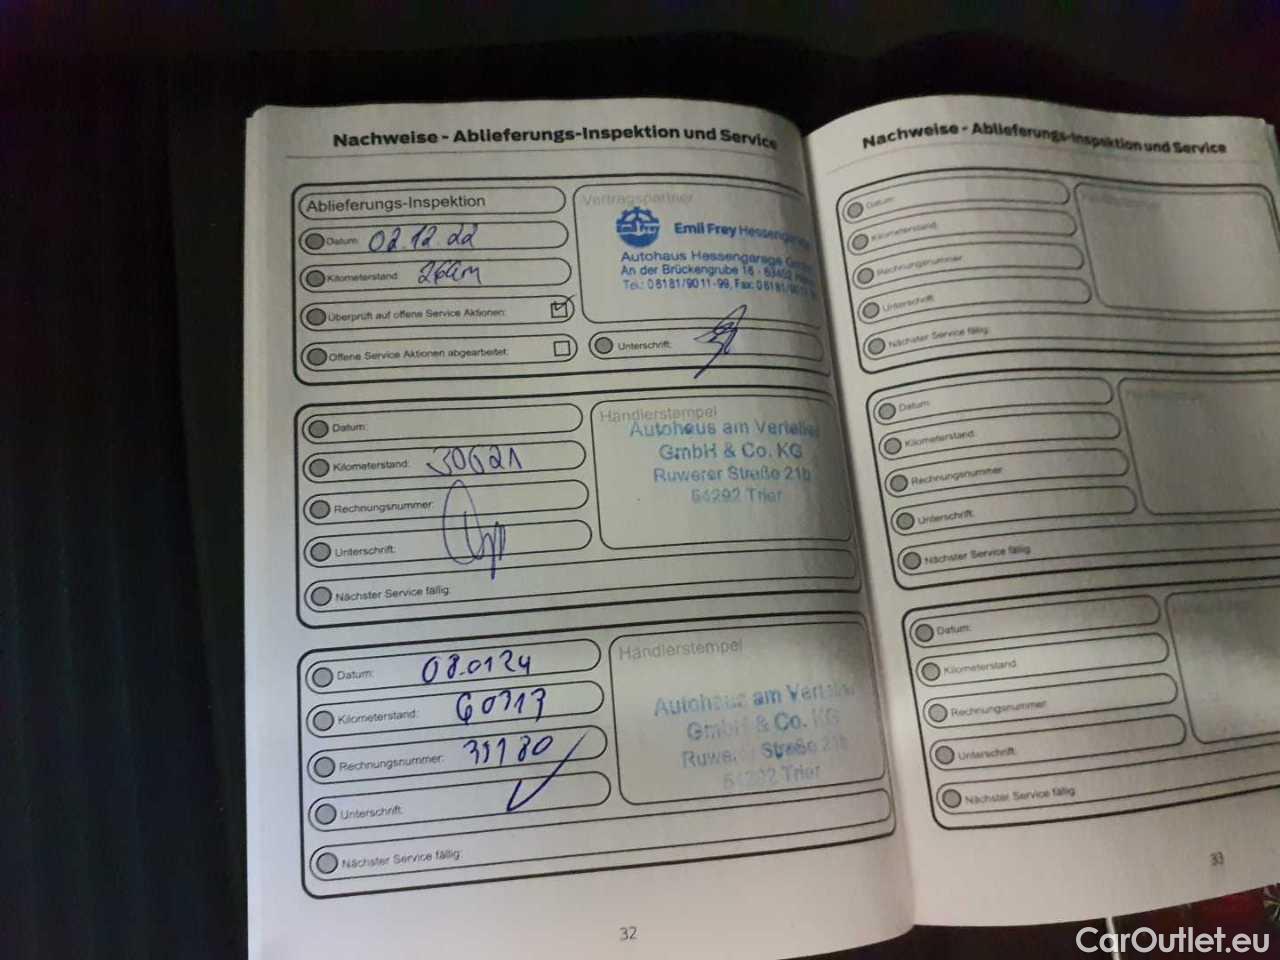 Nachweise - Ablieferungs-Inspektion und Service
Ablieferungs-Inspektion
Datum: 02.12.22
Kilometerstand:
Überprüft auf offene Service Aktionen:
Offene Service Aktionen abgearbeitet:
Vertragspartner
Emil Frey Hessengarage
Autohaus Hessengarage
An der Brückengrube 16 -
Tel.: 06181/9011-99, Fax:
Unterschrift:
Datum:
Kilometerstand: 30621
Rechnungsnummer:
Unterschrift:
Nächster Service fällig:
Händlerstempel
Autohaus am Verteiler
GmbH & Co. KG
Ruwerer Straße 21b
54292 Trier
Datum: 08.01.24
Kilometerstand: 60717
Rechnungsnummer:
Unterschrift:
Nächster Service fällig:
Händlerstempel
Autohaus am Verteiler
GmbH & Co. KG
Ruwerer Straße 21b
54292 Trier
32
Nachweise - Ablieferungs-Inspektion und Service
Datum:
Kilometerstand:
Rechnungsnummer:
Unterschrift:
Nächster Service fällig:
Datum:
Kilometerstand:
Rechnungsnummer:
Unterschrift:
Nächster Service fällig:
Datum:
Kilometerstand:
Rechnungsnummer:
Unterschrift:
Nächster Service fällig:
33
CarOutlet.eu